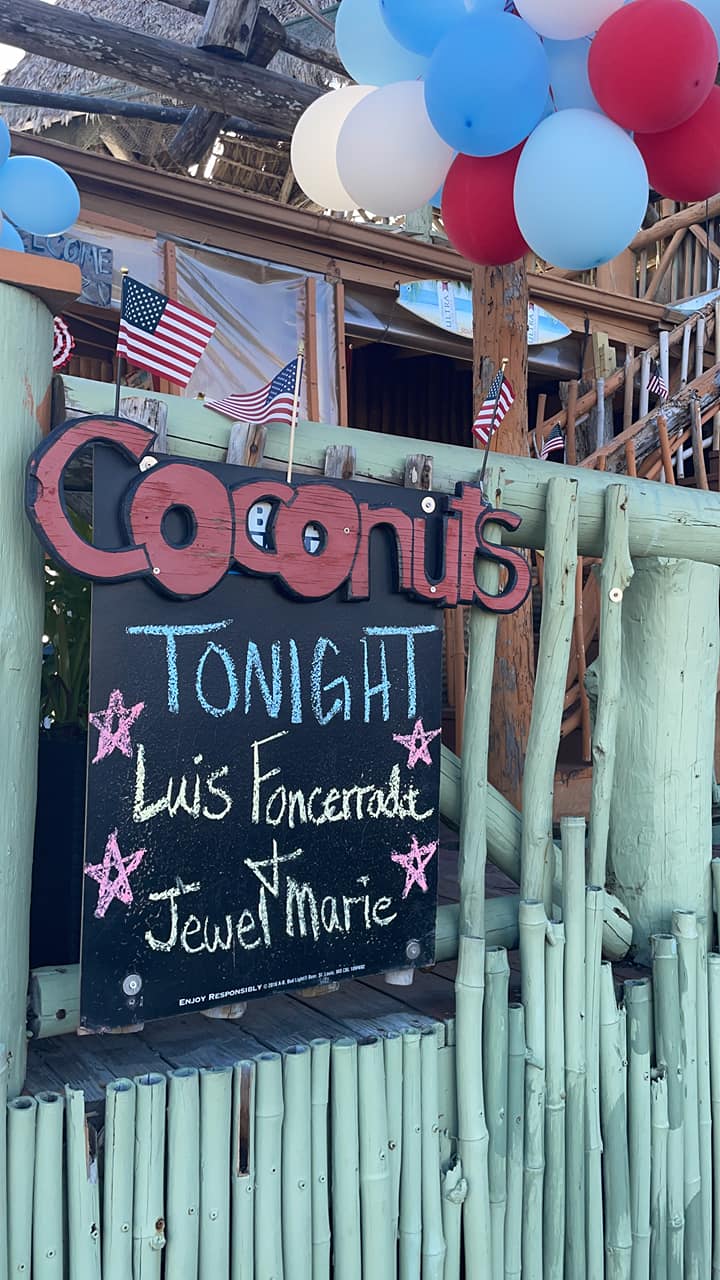 WELCOME
ULTRA
Coconuts
TONIGHT
Luis Foncerrada
+
Jewel Marie
ENJOY RESPONSIBLY © 2016 A-B, Bud Light® Beer, St. Louis, MO